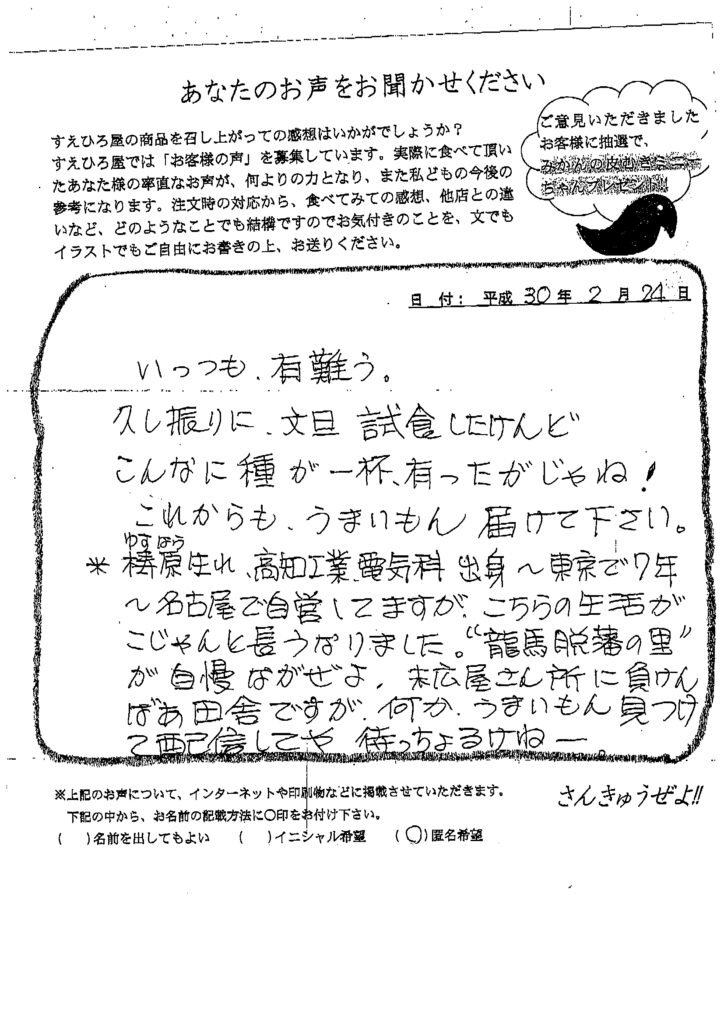 あなたのお声をお聞かせください
すえひろ屋の商品を召し上がっての感想はいかがでしょうか？
すえひろ屋では「お客様の声」を募集しています。実際に食べて頂い
たあなた様の率直なお声が、何よりの力となり、また私どもの今後の
参考になります。注文時の対応から、食べてみての感想、他店との違
いなど、どのようなことでも結構ですのでお気付きのことを、文でも
イラストでもご自由にお書きの上、お送りください。
ご意見いただきました
お客様に抽選で、
みかんの皮むきミニー
ちゃんプレゼント!!
日 付： 平成 30 年 2 月 24 日
いっつも、有難う。
久し振りに、文旦 試食したけんど
こんなに 種 が 一杯、有ったがじゃね！
これからも、うまいもん 届けて下さい。
ゆすはら
＊ 梼原生れ、高知工業、電気科 出身～東京で7年
～名古屋で自営してますが、こちらの生活が
こじゃんと長うなりました。“龍馬脱藩の里”
が 自慢 ながぜよ、末広屋さん所に負けん
ばあ田舎ですが、何か、うまいもん見つけ
て配信してや 待っちょるけねー。
※上記のお声について、インターネットや印刷物などに掲載させていただきます。
下記の中から、お名前の記載方法に〇印をお付け下さい。
（　）名前を出してもよい （　）イニシャル希望 （〇）匿名希望
さんきゅうぜよ!!